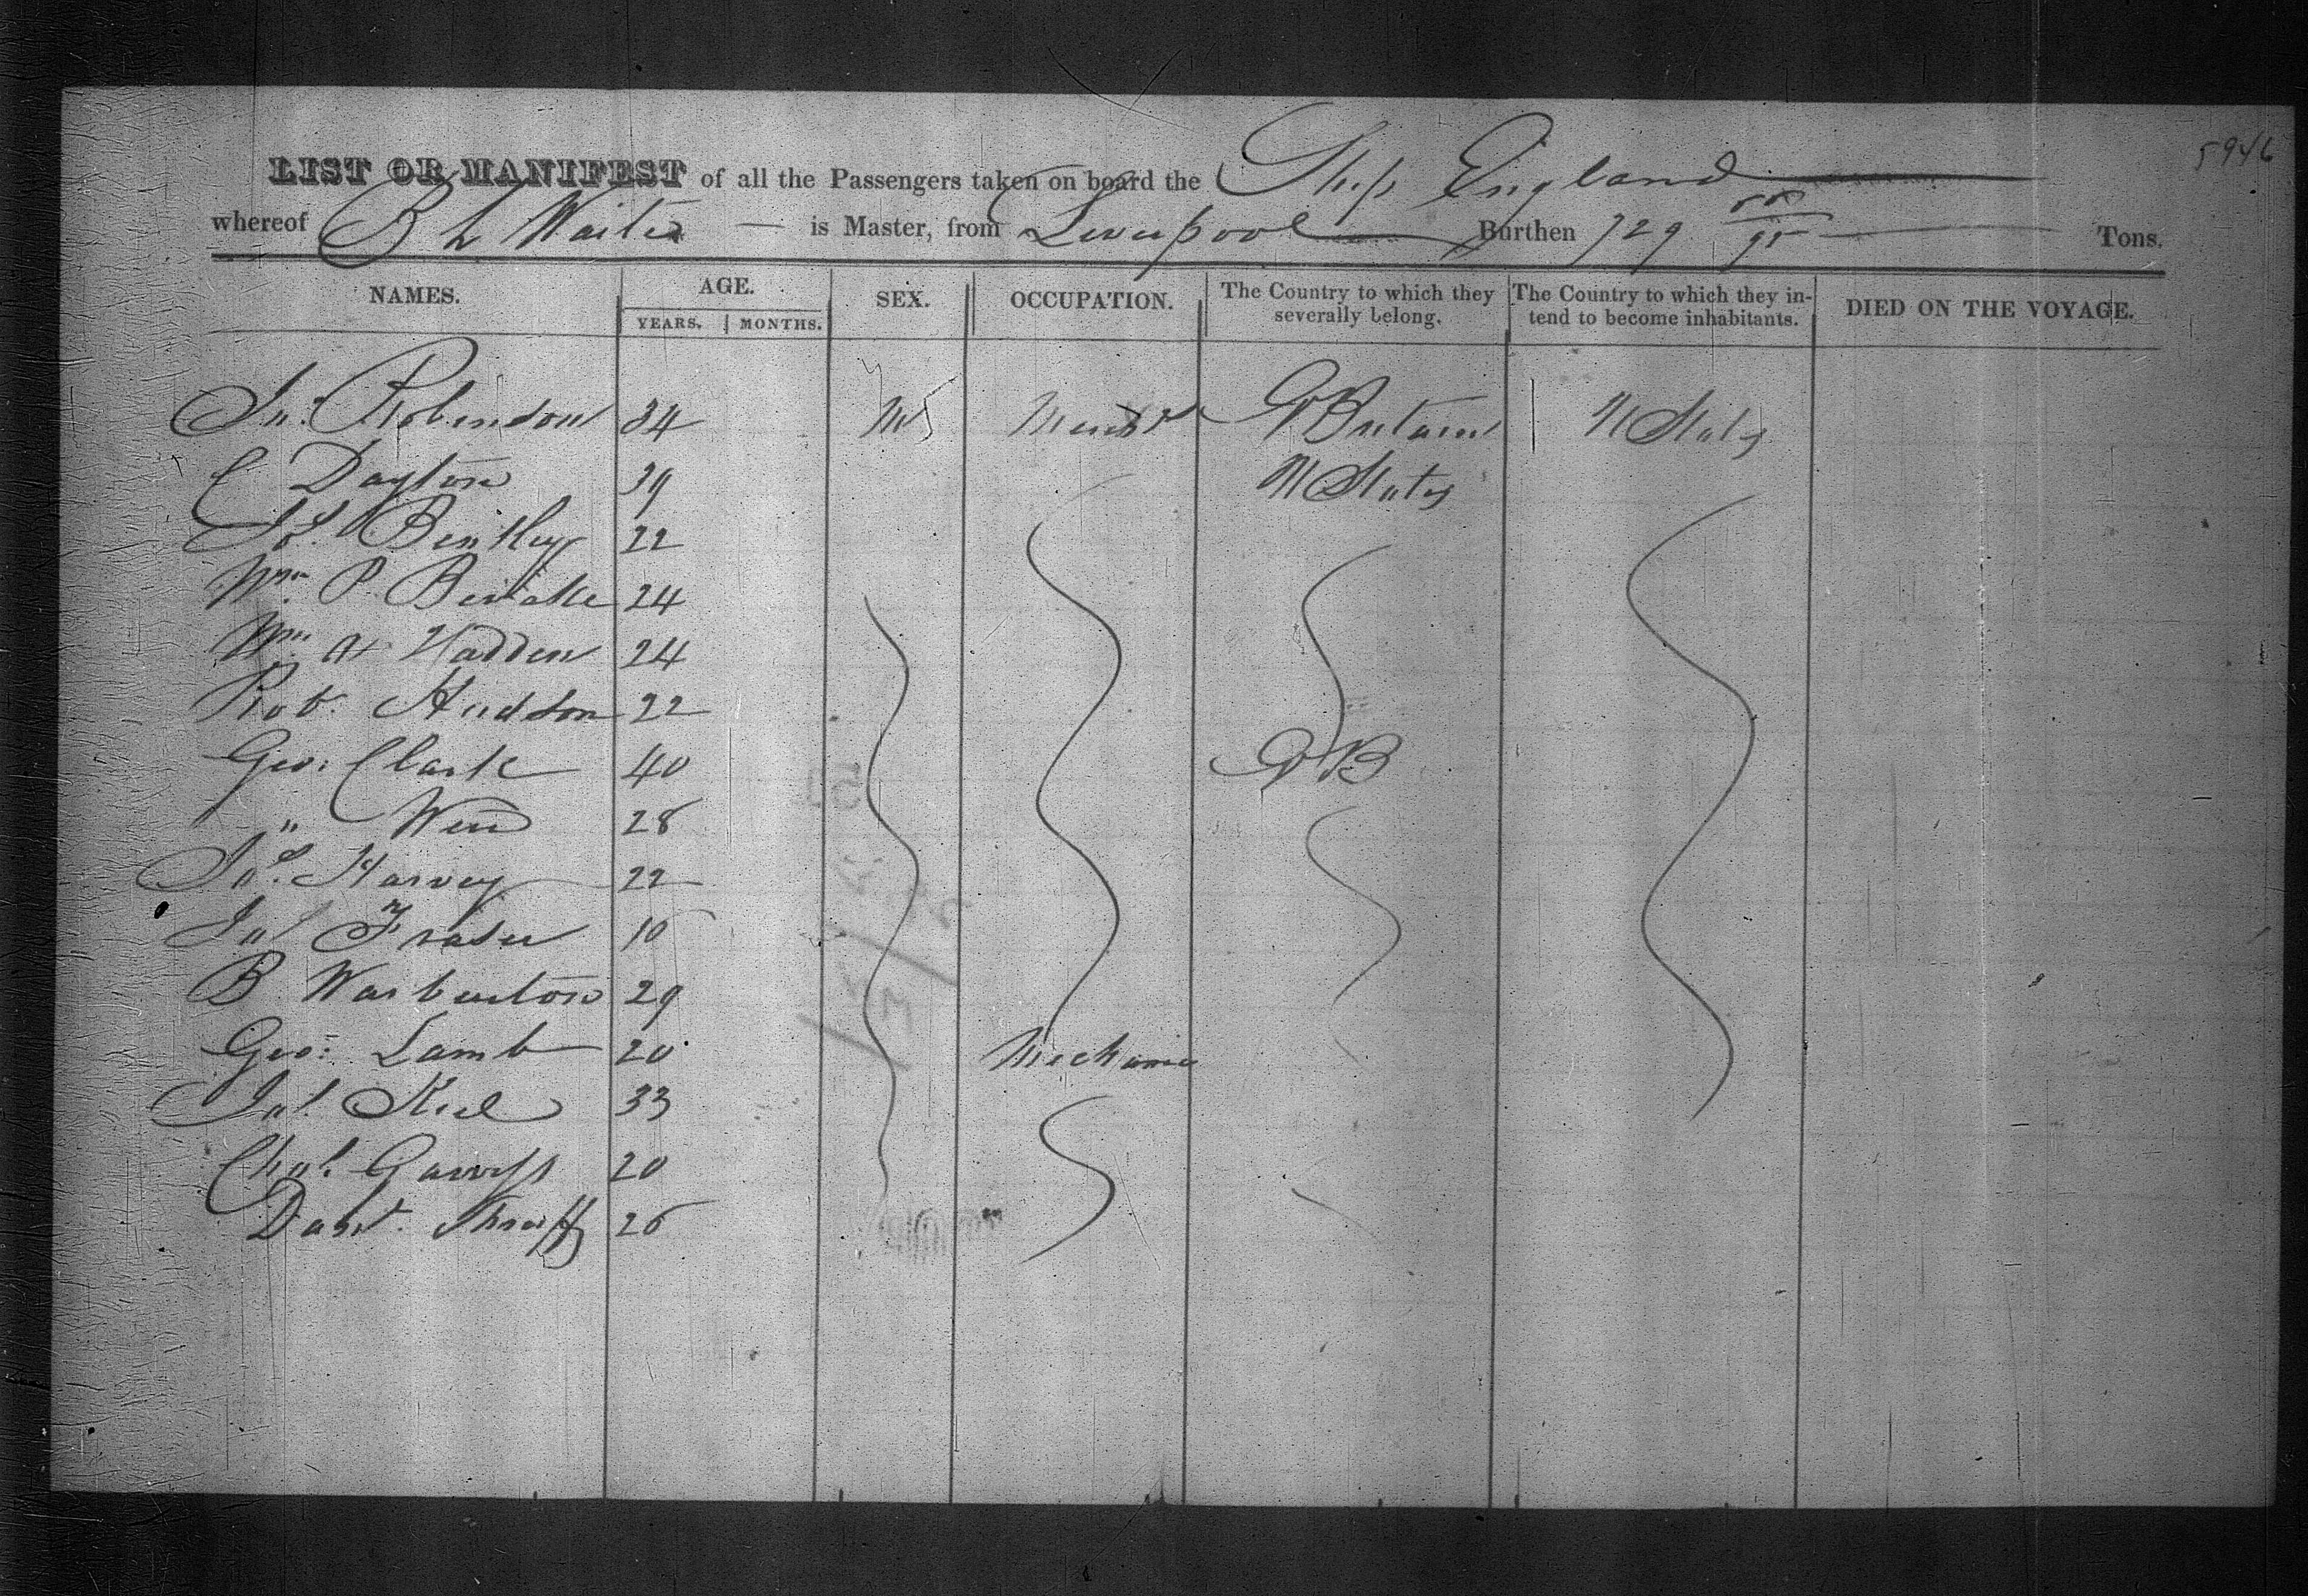 5946
LIST OR MANIFEST of all the Passengers taken on board the Ship England
whereof B L Waite is Master, from Liverpool Burthen 729 /95 Tons.
NAMES. AGE. SEX. OCCUPATION. The Country to which they severally belong. The Country to which they intend to become inhabitants. DIED ON THE VOYAGE.
YEARS. MONTHS.
Jno. Robinson 34 M Mercht G Britain U States
C Dayton 39 U States
Jos. Bentley 22
Wm. P. 24
Wm H Hadden 24
Rob. Hudson 22
Geo: Clark 40 G B
" Weir 28
Jas. Harvey 22
Jas Fraser
B Warburton 29
Geo: Lamb 20 Mechanic
Jas. Keel 33
Chas. 20
Danl. 26